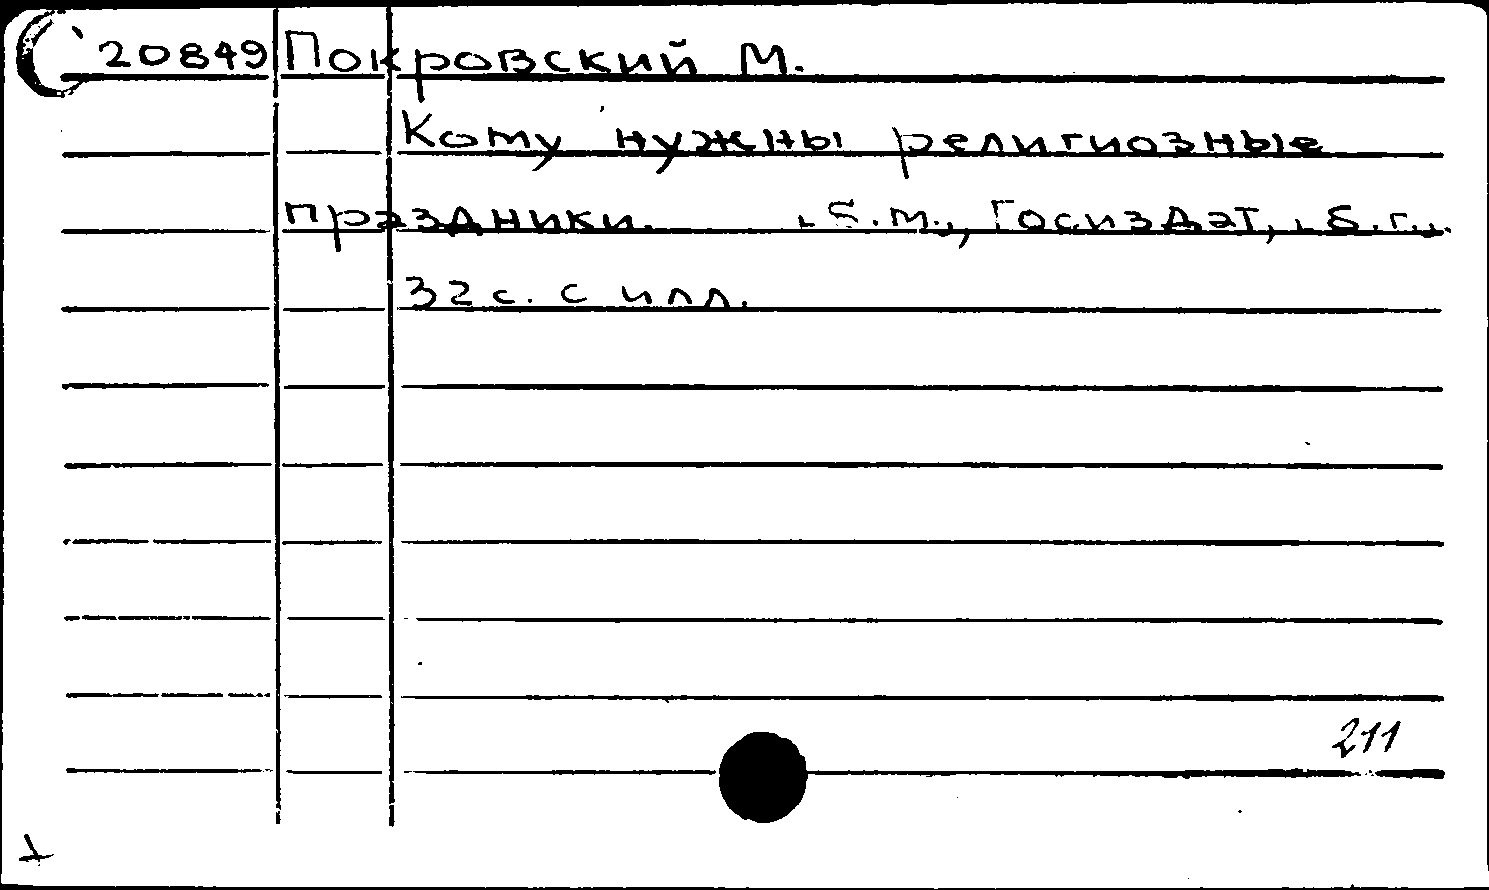 20849 Покровский М.
Кому нужны религиозные
праздники. [Б.м., Госиздат, [Б.г.].
32 с. с илл.
211